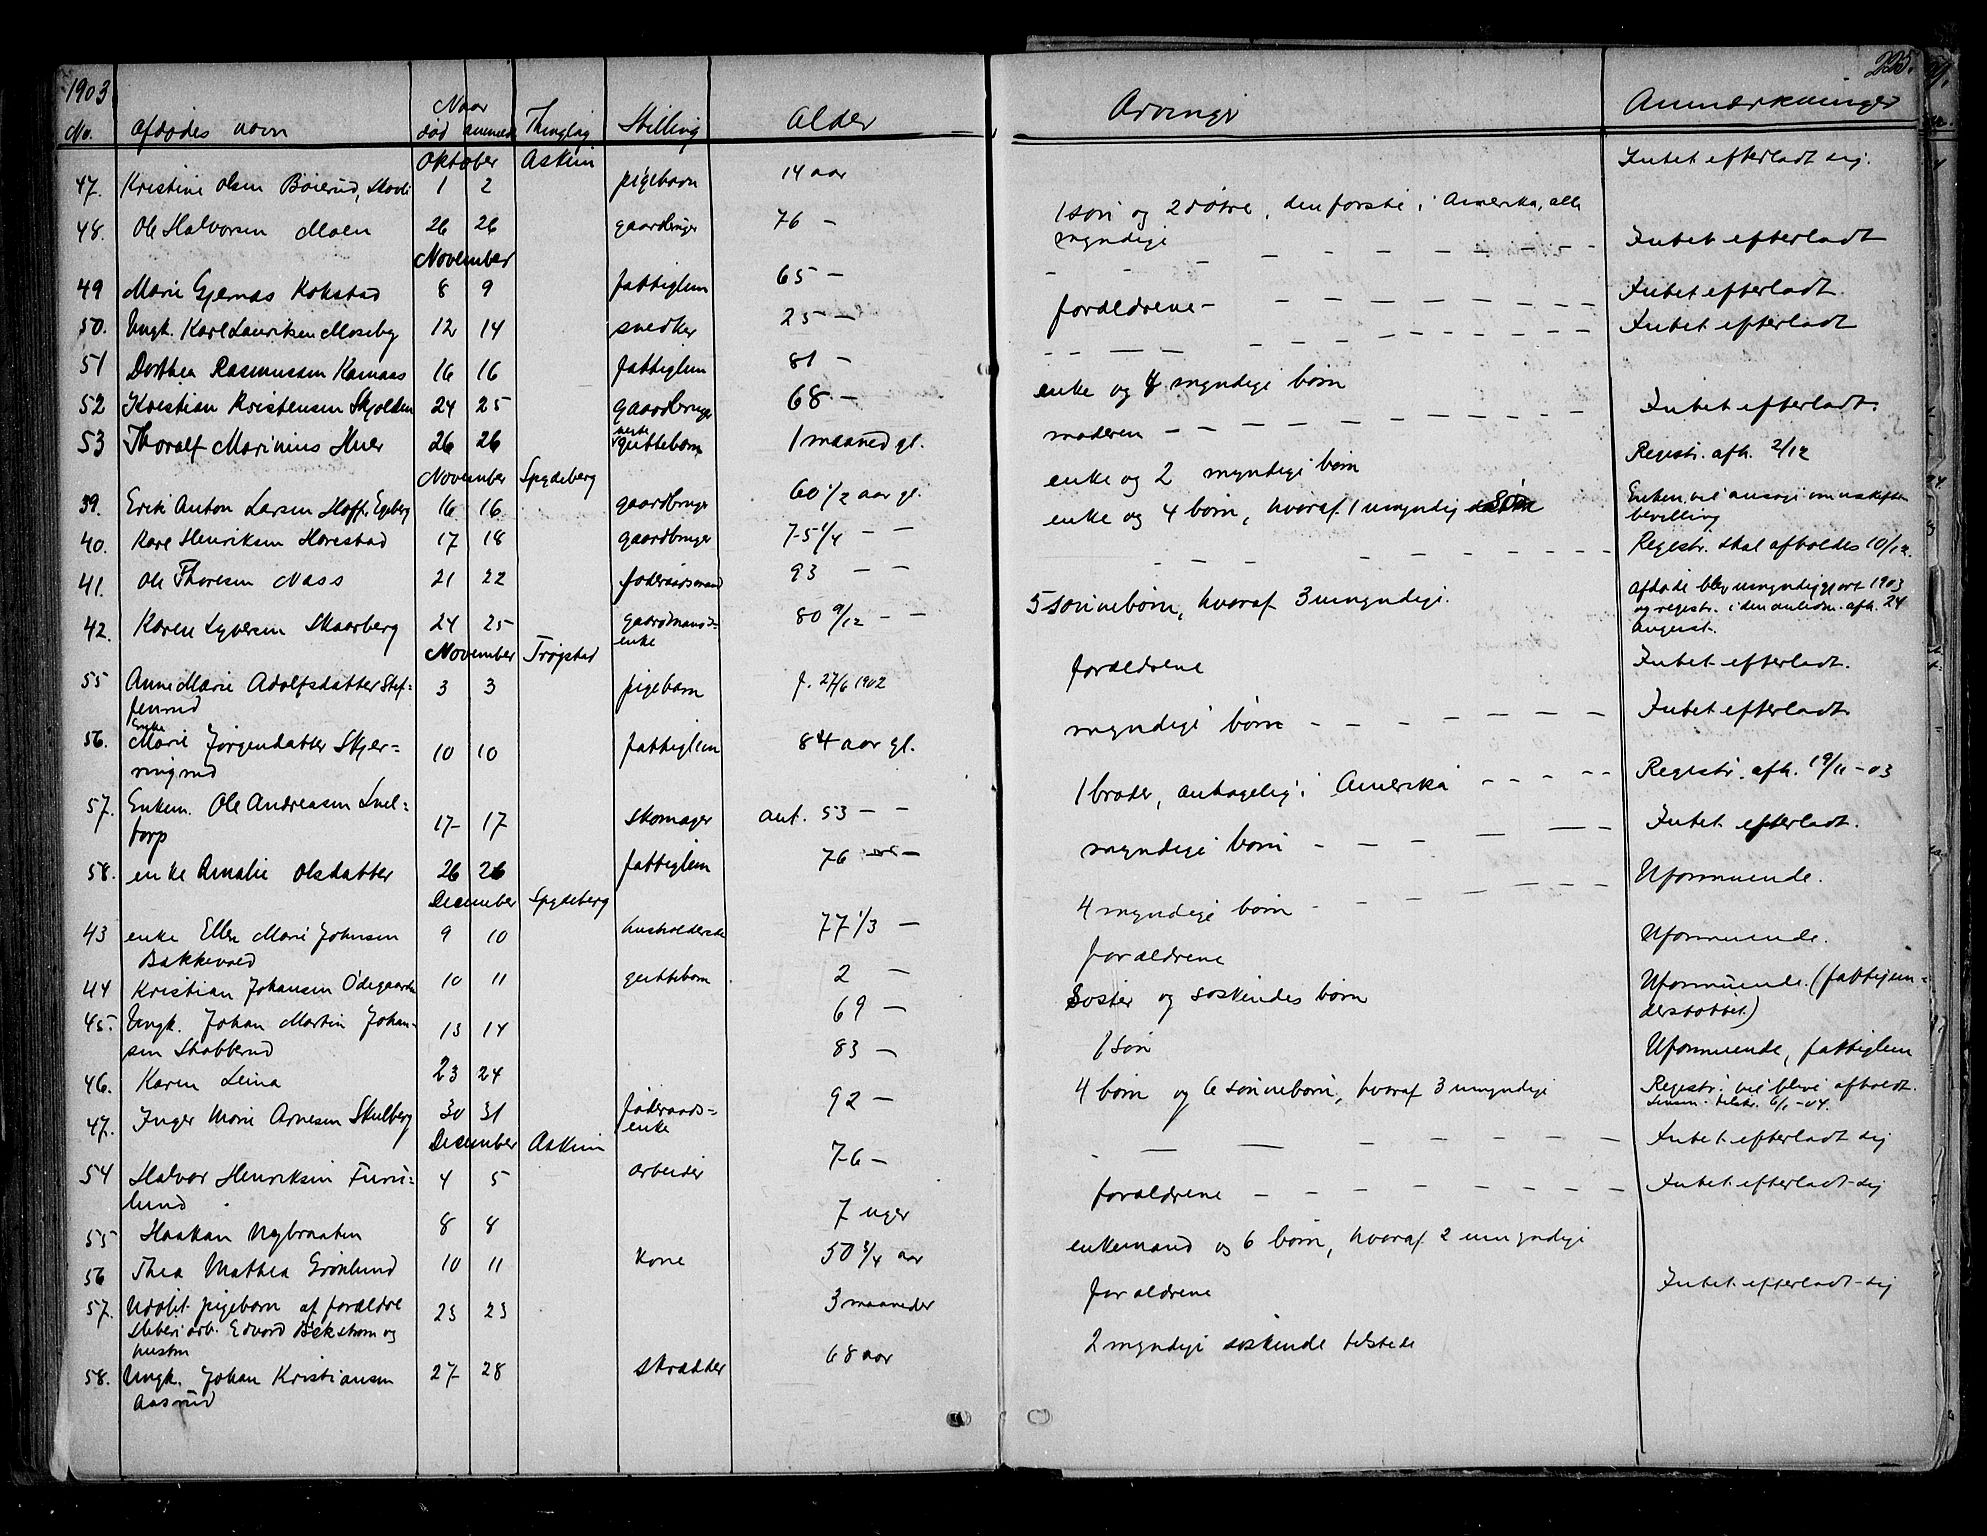 1903
225.
No. Afdødes navn Naar død anmeldt Thinglag Stilling Alder Arvinger Anmærkninger
Oktober Askim
47. Kristine Olsen Bøierud, 1 2 pigebarn 14 aar Intet efterladt sig.
48. Ole Halvorsen Moen 26 26 gaardbruger 76 — 1 søn og 2 døtre, den første i Amerika, alle
myndige Intet efterladt
November
49 Marie Gjernæs Kokstad 8 9 fattiglem 65 — Intet efterladt.
50. Ungk. Karl Lauritsen Moseby 12 14 snedker 25 — forældrene — Intet efterladt
51 Dorthea Rasmussen Kamaas 16 16 fattiglem 81 —
52 Kristian Kristensen Skjolden 24 25 gaardbruger 68 — enke og 4 myndige børn Intet efterladt.
53 Thoralf Marinius Huer 26 26 uægte gutteborn 1 maaned gl. moderen — Registr. afh. 2/12
November Spydeberg
39. Erik Anton Larsen Hoff, Egeberg 16 16 gaardbruger 60 1/2 aar gl. enke og 2 myndige børn Enken vil ansøge om uskifte
bevilling
40. Kare Henriksen Horestad 17 18 gaardbruger 75 1/4 — — enke og 4 børn, hvoraf 1 umyndig søn Registr. skal afholdes 10/12.
41. Ole Thoresen Næss 21 22 føderaadsmand 93 — — Afdøde blev umyndiggjort 1903
og registr. i den anledn. afh. 24
august.
42. Karen Syversen Skaarberg 24 25 gaardmands-
enke 80 9/12 — — 5 sønnebørn, hvoraf 3 umyndige.
November Trøgstad
55 Anne Marie Adolfsdatter Stef-
fenrud 3 3 pigebarn f. 27/6 1902 forældrene Intet efterladt.
56. Enke Marie Jørgendatter Skjer-
ringrud 10 10 fattiglem 84 aar gl. myndige børn Intet efterladt
57. Enkem. Ole Andreasen Snel-
torp 17 17 skomager ant. 53 — — 1 broder, antagelig i Amerika Registr. afh. 19/11 - 03
58. enke Amalie Olsdatter 26 26 fattiglem 76 — myndige børn Intet efterladt.
December Spydeberg
43 enke Ellen Marie Johnsen
Bakkevold 9 10 husholderske 77 1/3 — 4 myndige børn Uformuende.
44 Kristian Johansen Ødegaarden 10 11 gutteborn 2 — forældrene Uformuende.
45. Ungk. Johan Martin Johan-
sen Stabberud 13 14 69 — Søster og søskendes børn Uformuende (fattigun-
derstøttet)
46. Karen Leina 23 24 83 — 1 søn Uformuende, fattiglem
47. Inger Marie Arnesen Skulberg 30 31 føderaads-
enke 92 — 4 børn og 6 sønnebørn, hvoraf 3 umyndige Registr. vil blive afholdt.
6/1 - 04.
December Askim
54 Halvor Henriksen Furu-
lund 4 5 arbeider 76 — Intet efterladt sig
55 Haakan Nybraaten 8 8 7 uger forældrene — Intet efterladt sig
56 Thea Mathea Grønlund 10 11 kone 50 3/4 aar enkemand og 6 børn, hvoraf 2 umyndige
57. Udøbt pigebarn af forældre
sliberiarb. Edvard Bäkstrøm og
hustru 23 23 3 maaneder forældrene Intet efterladt sig
58. Ungk. Johan Kristiansen
Aasrud 27 28 skrædder 68 aar 2 myndige søskende tilstede